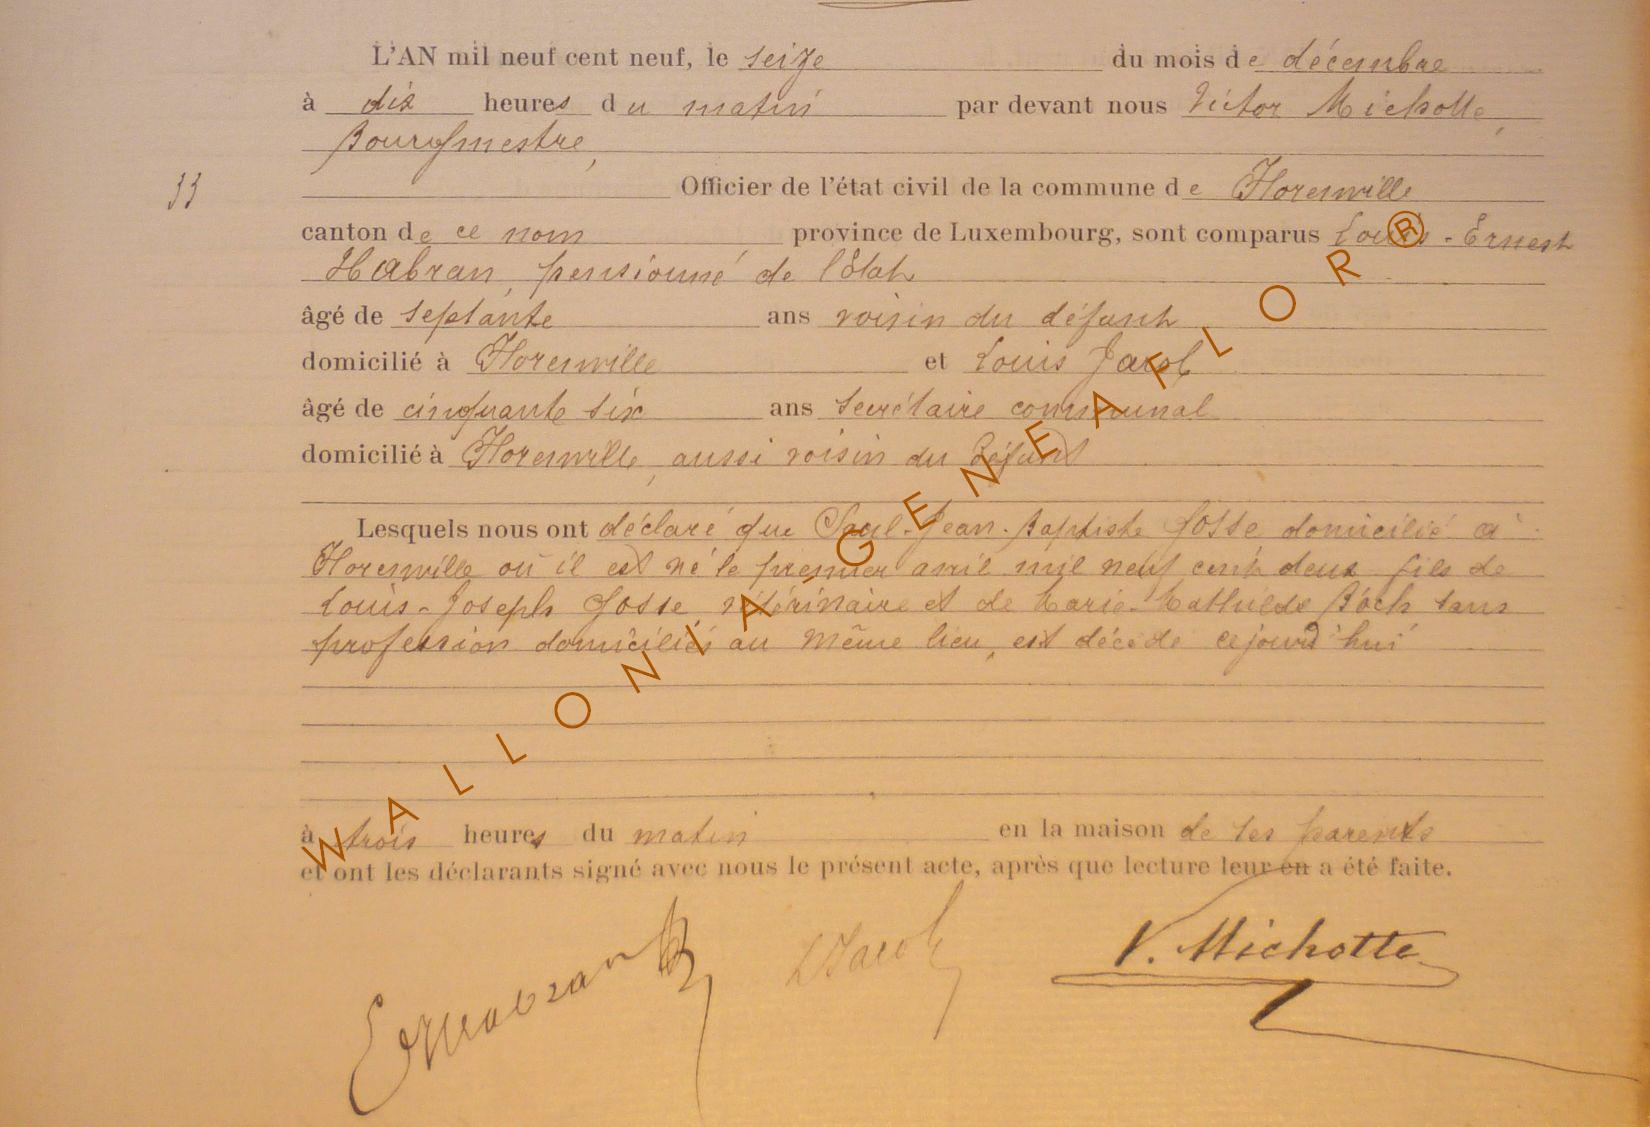 L'AN mil neuf cent neuf, le seize du mois de décembre
à dix heures du matin par devant nous Victor Michotte,
Bourgmestre,
33 Officier de l'état civil de la commune de Florenville
canton de ce nom province de Luxembourg, sont comparus Louis-Ernest
Habran, pensionné de l'Etat
âgé de septante ans voisin du défunt
domicilié à Florenville et Louis Jacob
âgé de cinquante six ans secrétaire communal
domicilié à Florenville, aussi voisin du défunt
Lesquels nous ont déclaré que Paul-Jean-Baptiste Gosse domicilié à
Florenville où il est né le premier avril mil neuf cent deux fils de
Louis-Joseph Gosse, vétérinaire et de Marie-Mathilde Boch sans
profession domiciliés au même lieu, est décédé cejourd'hui
à trois heures du matin en la maison de ses parents
et ont les déclarants signé avec nous le présent acte, après que lecture leur en a été faite.
LJacob V. Michotte
WALLONIA-GENEAFLOR®